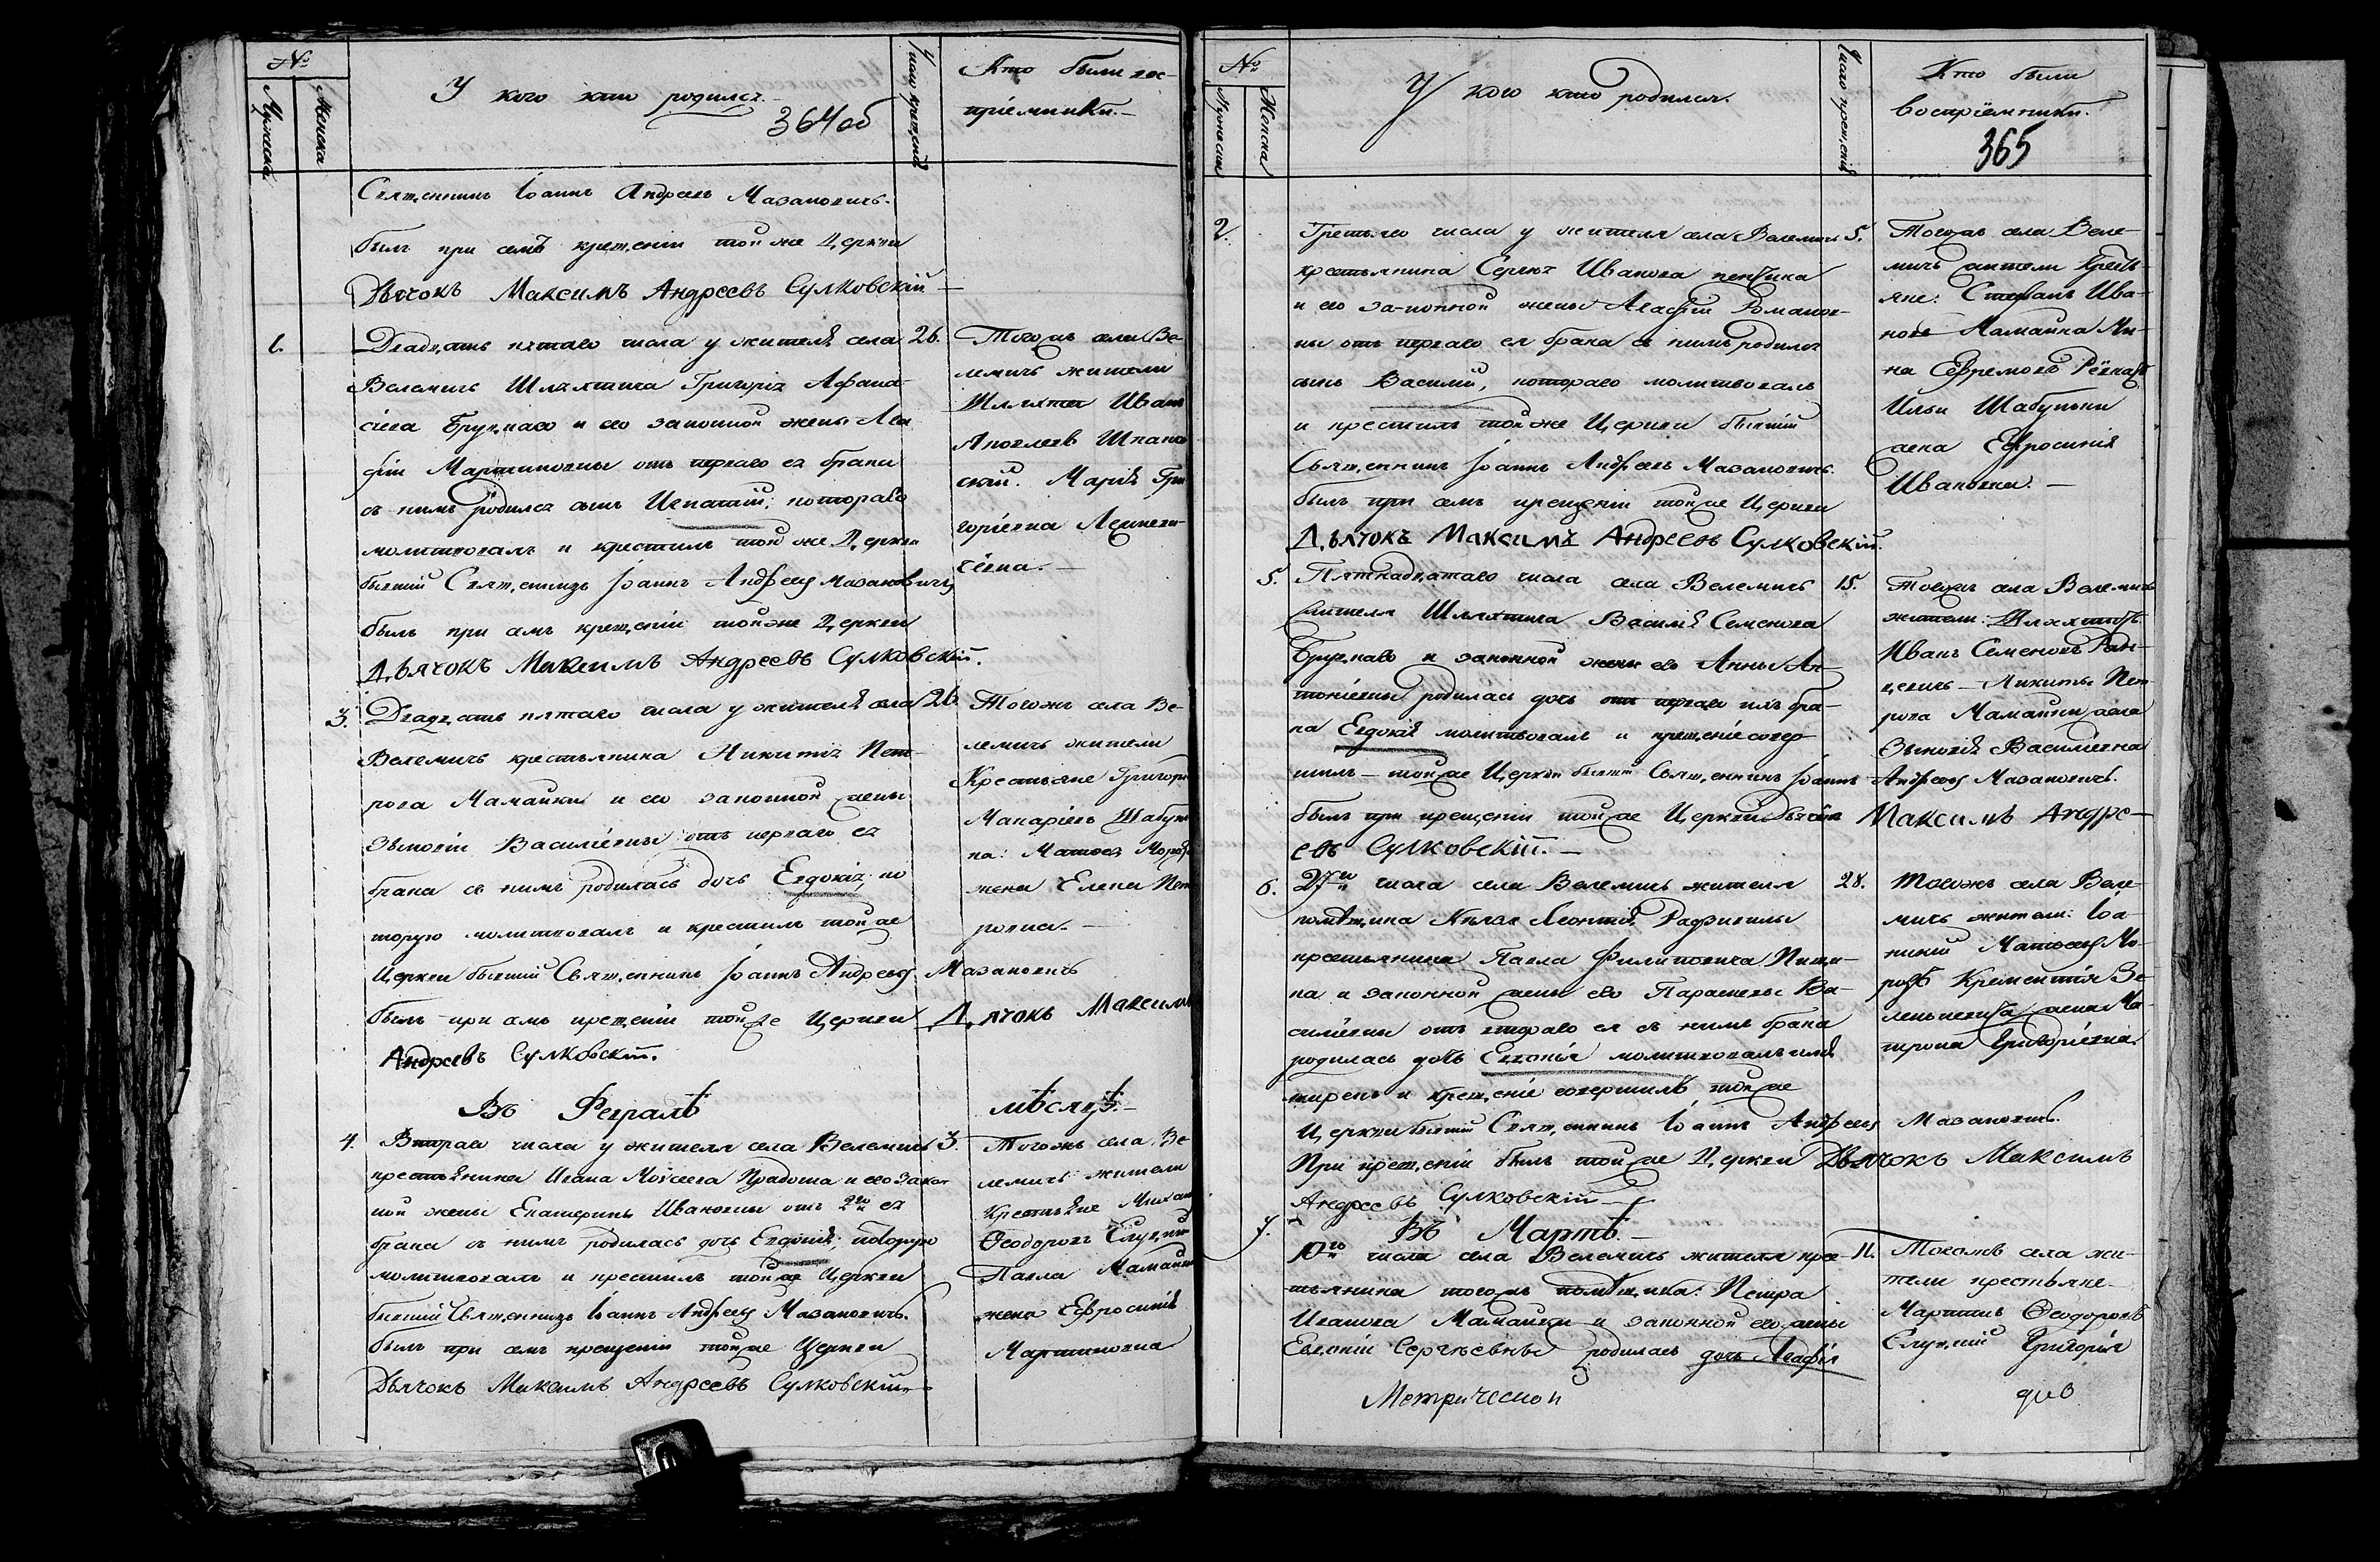 №
Мужеска
Женска
У кого кто родился.
364об
Число крещеній
Кто были вос-
пріемники.
Священникъ Іоаннъ Андреевъ Мазановичъ.
былъ при семъ крещеніи той же Церкви
Дьячокъ Максимъ Андреевъ Сулковскій
1.
Двадцать пятаго числа у жителя села
Велемичъ Шляхтича Григорія Афана-
сіева и его законной жены Ага
фіи Мартиновны отъ перваго ея брака
съ нимъ родился сынъ Игнатій; котораго
молитвовалъ и крестилъ той же Церкви
бывшій Священникъ Іоаннъ Андреевъ Мазановичъ
былъ при семъ крещеніи той же Церкви
Дьячокъ Максимъ Андреевъ Сулковскій.
26.
Тогожъ села Ве-
лемичъ жители
Шляхта Иванъ
скій. Марія Гри
горіевна
3.
Двадцать пятаго числа у жителя села
Велемичъ крестьянина Никиты Пет-
рова Мамайки и его законной жены
Зѣновіи Василіевны отъ перваго ея
брака съ нимъ родилась дочь Евдокія; ко
торую молитвовалъ и крестилъ той же
Церкви бывшій Священникъ Іоаннъ Андреевъ Мазановичъ
былъ при семъ крещеніи той же Церкви Дьячокъ Максимъ
Андреевъ Сулковскій.
26.
Тогожъ села Ве-
лемичъ жители
Крестьяне Григорій
Макаріевъ Шабунь
ка:
жена Елена Пет
ровна.
Въ Февралѣ мѣсяцѣ.
4.
Втораго числа у жителя села Велемичъ
крестьянина Ивана Моисеева и его закон
ной жены Екатерины Ивановны отъ 2го ея
брака съ нимъ родилась дочь Евдокія; которую
молитвовалъ и крестилъ той же Церкви
бывшій Священникъ Іоаннъ Андреевъ Мазановичъ.
былъ при семъ крещеніи той же Церкви
Дьячокъ Максимъ Андреевъ Сулковскій
3.
Тогожъ села Ве
лемичъ жители
Крестьяне
Ѳеодоровъ
Павла Мамайки
жена Ефросинія
Мартиновна
№
Мужеска
Женска
У кого кто родился.
Число крещеній
Кто были
воспріемники.
365
2.
Третьяго числа у жителя села Велемичъ
крестьянина Сергія Иванова
и его законной жены Агафіи Романов-
ны отъ перваго ея брака съ нимъ родился
сынъ Василій, котораго молитвовалъ
и крестилъ той же Церкви бывшій
Священникъ Іоаннъ Андреевъ Мазановичъ.
былъ при семъ крещеніи той же Церкви
Дьячокъ Максимъ Андреевъ Сулковскій.
5.
Тогожъ села Веле-
мичъ жители Кресть-
яне: Стефанъ Ива-
новъ Мамайка
Ильи Шабуньки
жена Ефросинія
Ивановна.
5.
Пятнадцатаго числа села Велемичъ
жителя Шляхтича Василія Семенова
и законной жены его Анны Ан-
тоніевны родилась дочь отъ перваго ихъ бра-
ка Евдокія молитвовалъ и крещеніе совер-
шилъ той же Церкви бывшій Священникъ Іоаннъ Андреевъ Мазановичъ.
былъ при крещеніи той же Церкви Дьячокъ Максимъ Андре-
евъ Сулковскій.
15.
Тогожъ села Велемичъ
жители: Шляхтичъ
Иванъ Семеновъ
Никиты Пет-
рова Мамайки жена
Зѣновія Василіевна
6.
27го числа села Велемичъ жителя
помѣщика Князя
крестьянина Павла Филиповича
и законной жены его Параскевы Ва-
силіевны отъ втораго ея съ нимъ брака
родилась дочь Евгенія молитвовалъ
и крещеніе совершилъ той же
Церкви бывшій Священникъ Іоаннъ Андреевъ Мазановичъ.
При крещеніи былъ той же Церкви Дьячокъ Максимъ
Андреевъ Сулковскій
28.
Тогожъ села Веле-
мичъ жители:
жена Ма-
трона Григоріевна.
Въ Мартѣ.
7.
10го числа села Велемичъ жителя кре-
стьянина тогожъ помѣщика: Петра
Иванова Мамайки и законной его жены
Евгеніи Сергѣевны родилась дочь Агафія
11.
Тогожъ села жи-
тели крестьяне
Мартинъ Ѳеодоровъ
Григорія
Метрической